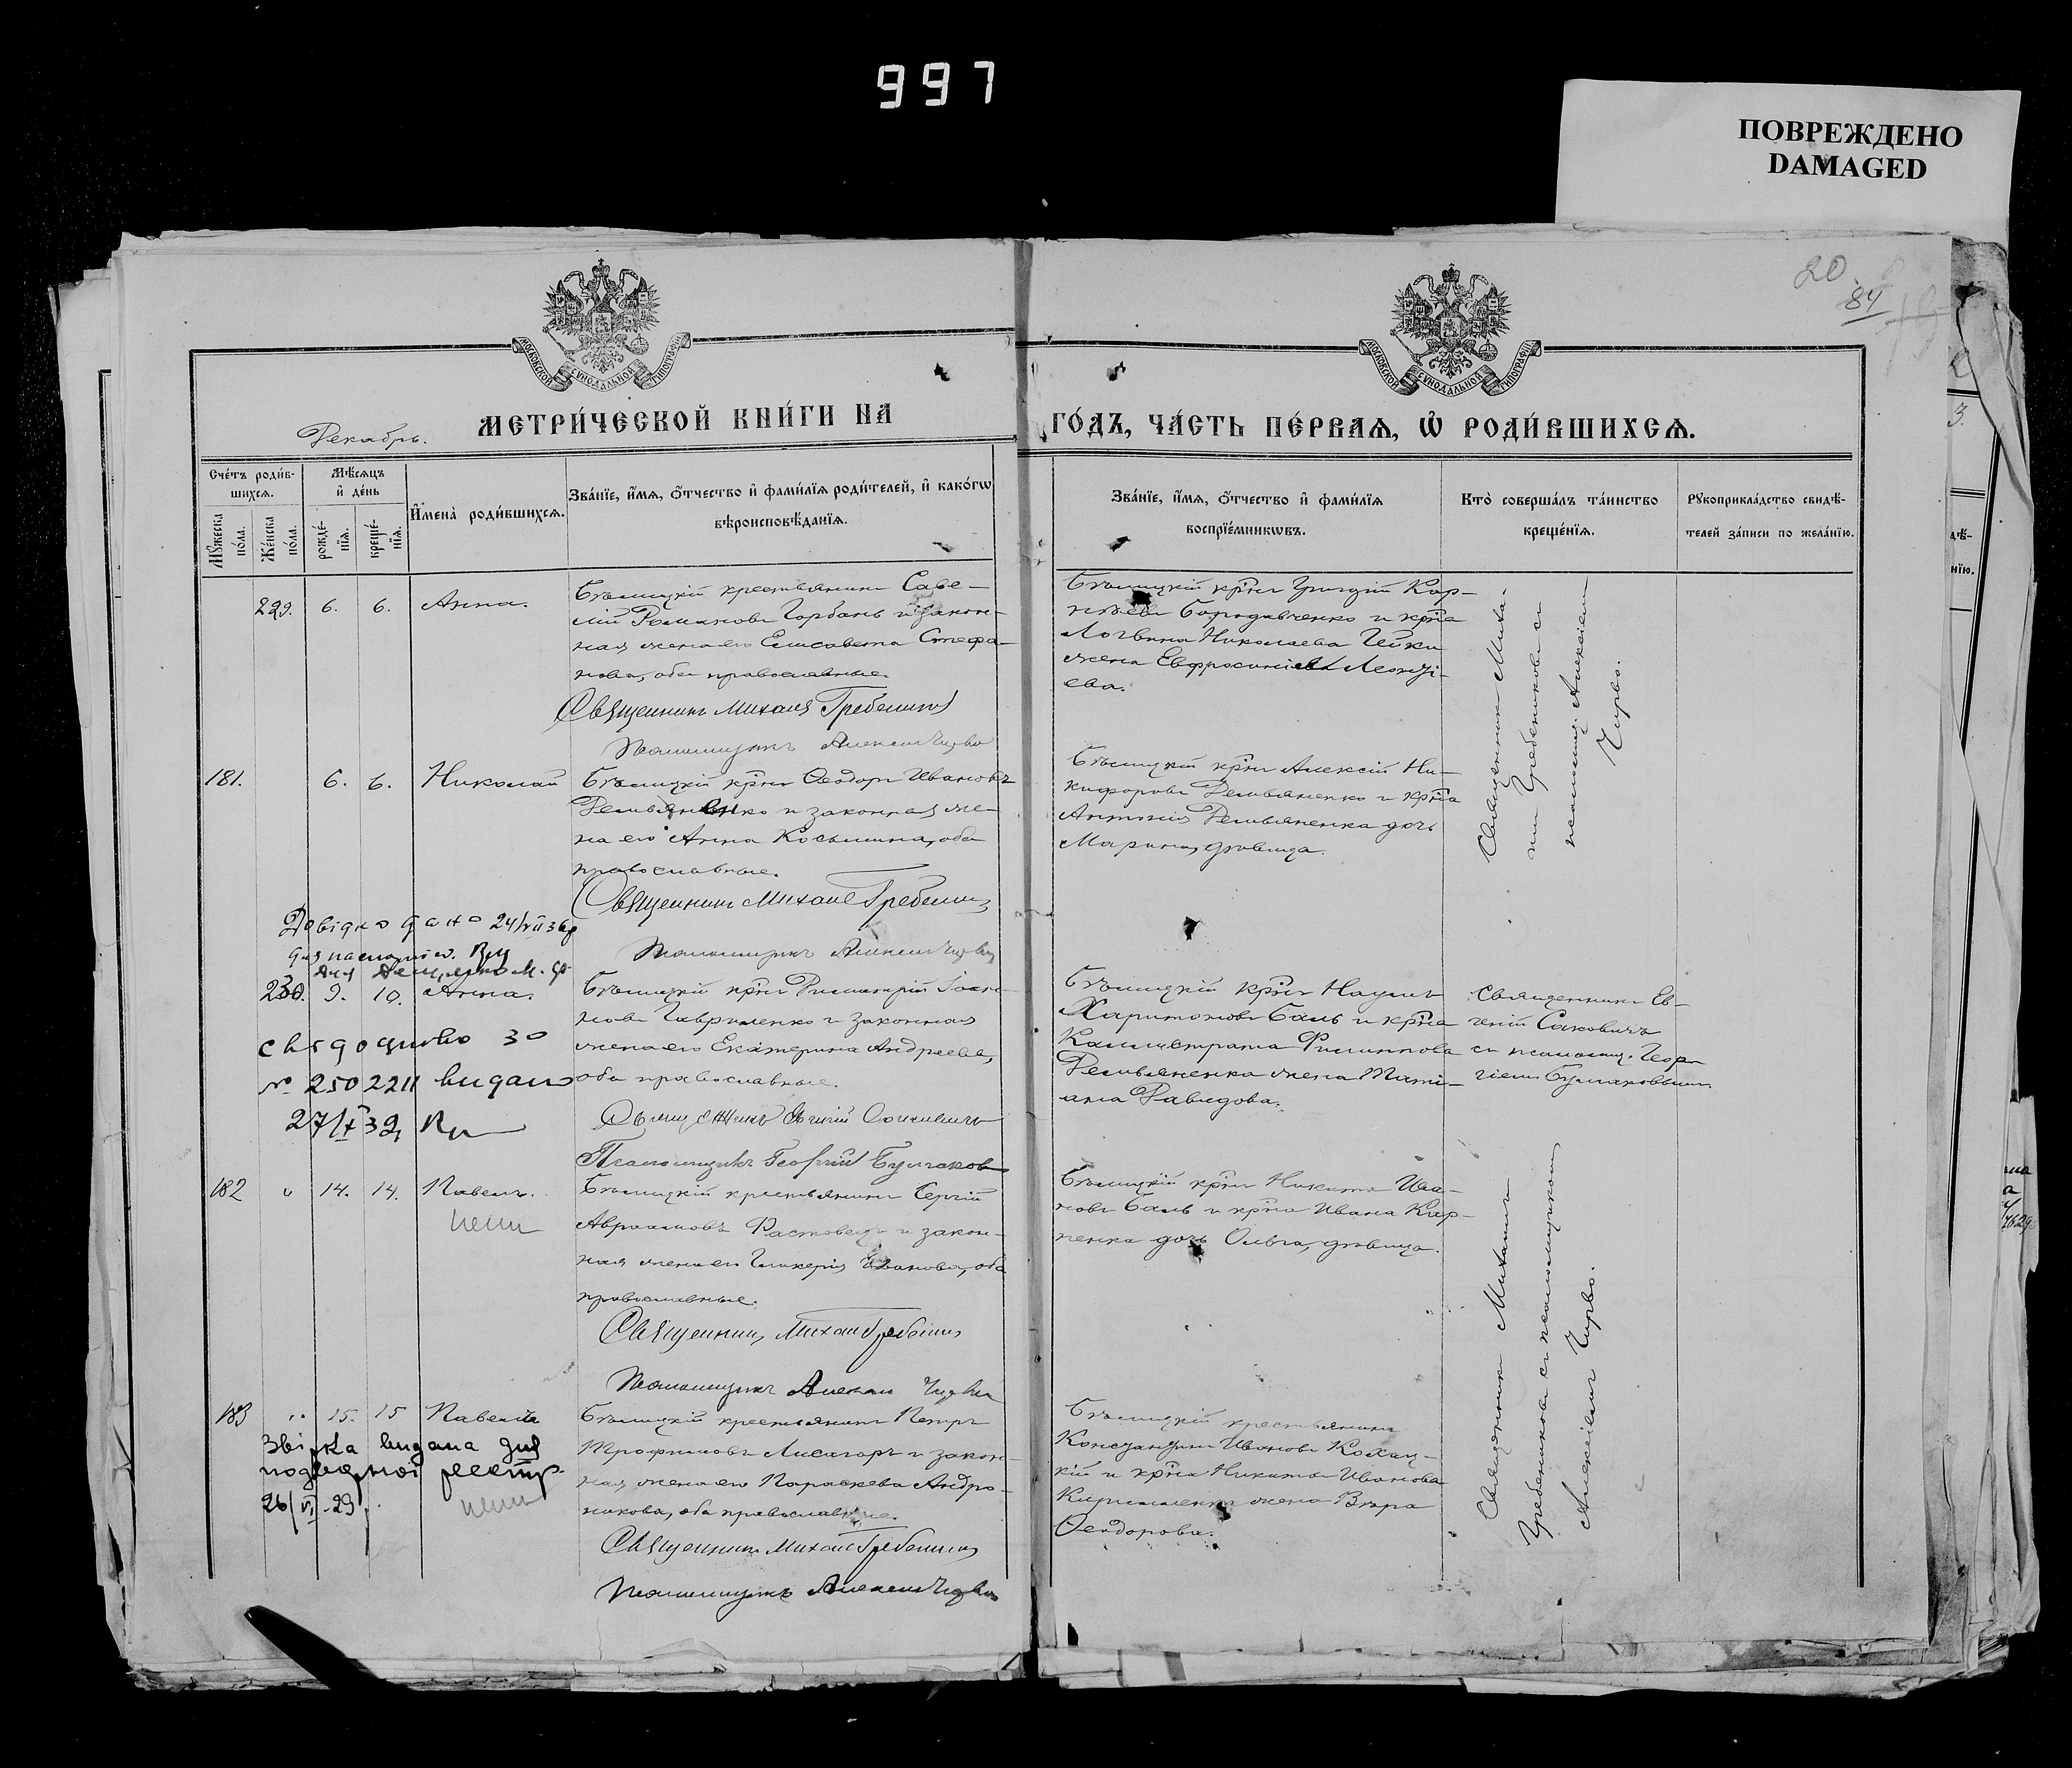 997
ПОВРЕЖДЕНО
DAMAGED
20
84
МОСКОВСКОЙ СѴНОДАЛЬНОЙ ТИПОГРАФІИ
МОСКОВСКОЙ СѴНОДАЛЬНОЙ ТИПОГРАФІИ
Декабрь.
МЕТРИ́ЧЕСКОЙ КНИ́ГИ НА
ГО́ДЪ, ЧА́СТЬ ПЕ́РВАѦ, Ѽ РОДИ́ВШИХСѦ.
Сче́тъ роди́в-
шихсѧ.
Мꙋ́жеска
по́ла.
Же́нска
по́ла.
Мѣ́сѧцъ
и҆ де́нь
рожде́-
нїѧ.
креще́-
нїѧ.
И҆мена̀ роди́вшихсѧ.
Зва́нїе, и҆́мѧ, ѻ҆́тчество и҆ фами́лїѧ роди́телей, и҆ како́гѡ
вѣроисповѣ́данїѧ.
Зва́нїе, и҆́мѧ, ѻ҆́тчество и҆ фами́лїѧ
воспрїе́мникѡвъ.
Кто̀ соверша́лъ та́инство
креще́нїѧ.
Рꙋкоприкла́дство свидѣ́-
телей за́писи по жела́нїю.
229. 6. 6. Анна.
Бѣлицкій крестьянинъ Саве-
лій Романовъ Горбань и закон-
ная жена его Елисавета Стефа-
нова, оба православные.
Священникъ Михаил Гребеников
Псаломщикъ Алексій Чирво
Бѣлицкій кр̃нъ Григорій Кор-
нѣевъ Бородавченко и кр̃на
Логвина Николаева Гейки
жена Евфросинія Леонті-
ева.
Священникъ Миха-
илъ Гребениковъ съ
псаломщ. Алексіемъ
Чирво.
181. 6. 6. Николай
Бѣлицкій кр̃нъ Ѳеодоръ Ивановъ
Демьяненко и законная же-
на его Анна Косьмина, оба
православные.
Священникъ Михаил Гребеников
Псаломщикъ Алексій Чирво
Бѣлицкій кр̃нъ Алексій Ни-
кифоровъ Демьяненко и кр̃на
Антонія Демьяненка дочь
Марина, дѣвица.
Довідка дана 24/VII 36 р
для паспортів.
230. 9. 10. Анна.
Бѣлицкій кр̃нъ Димитрій Іоан-
новъ Гавриленко и законная
жена его Екатерина Андреева,
оба православные.
Священникъ Евгеній Саковичъ
Псаломщикъ Георгій Булгаковъ
Бѣлицкій кр̃нъ Наумъ
Харитоновъ Баль и кр̃на
Каллистрата Филиппова
Демьяненка жена Тати-
ана Давидова.
Священникъ Ев-
геній Саковичъ
съ псаломщ. Геор-
гіемъ Булгаковымъ
свідоцтво за
№ 2502211 видано
27/X 32,
182 " 14. 14. Павелъ.
Бѣлицкій крестьянинъ Сергій
Авраамовъ Ростовецъ и закон-
ная жена его Гликерія Иванова, оба
православные.
Священникъ Михаил Гребеников
Псаломщикъ Алексій Чирво
Бѣлицкій кр̃нъ Никита Ива-
новъ Баль и кр̃на Ивана Кар-
пенка дочь Ольга, дѣвица.
Священникъ Михаилъ
Гребениковъ съ псаломщикомъ
Алексіемъ Чирво.
183 " 15. 15 Павелъ
Бѣлицкій крестьянинъ Петръ
Трофимовъ Лисагоръ и закон-
ная жена его Параскева Андро-
никова, оба православные.
Священникъ Михаил Гребеников
Псаломщикъ Алексій Чирво
Бѣлицкій крестьянинъ
Константинъ Ивановъ Кохац-
кій и кр̃на Никиты Иванова
Кириленка жена Вѣра
Ѳеодорова.
Звірка видана для
подвірної реєстр.
26/VI-29.